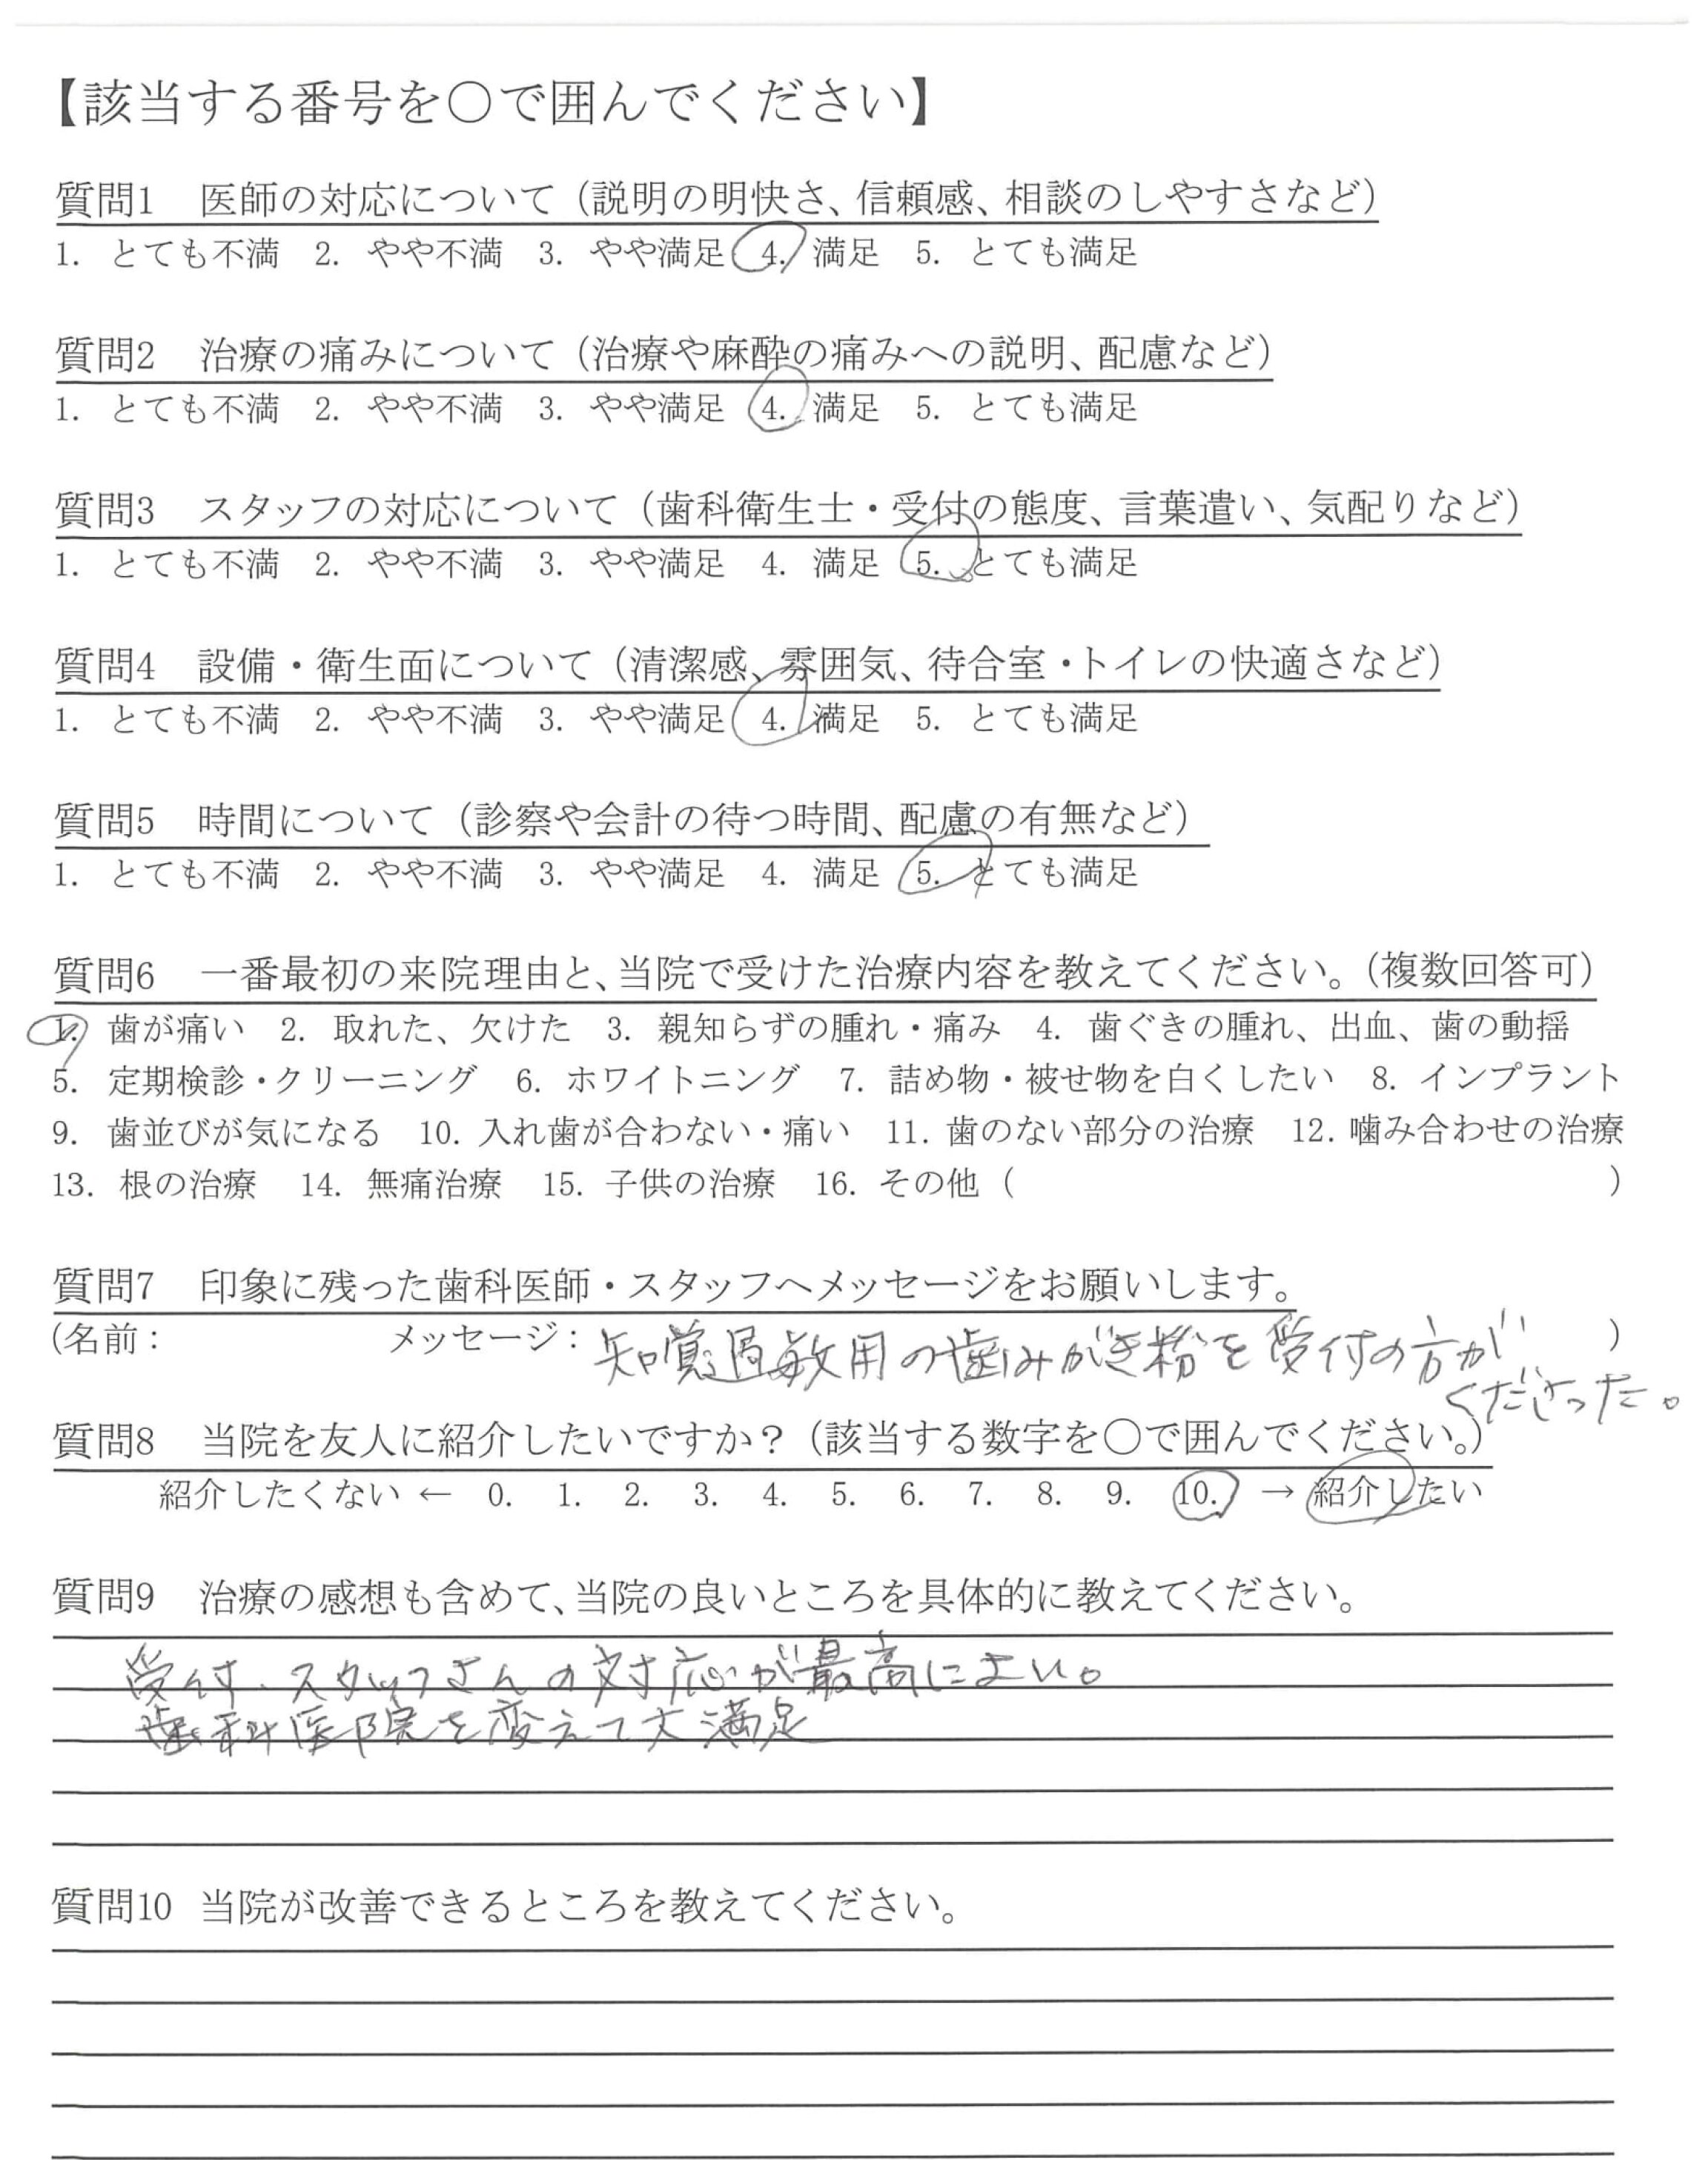 【該当する番号を○で囲んでください】
質問1　医師の対応について（説明の明快さ、信頼感、相談のしやすさなど）
1. とても不満　2. やや不満　3. やや満足　4. 満足　5. とても満足
質問2　治療の痛みについて（治療や麻酔の痛みへの説明、配慮など）
1. とても不満　2. やや不満　3. やや満足　4. 満足　5. とても満足
質問3　スタッフの対応について（歯科衛生士・受付の態度、言葉遣い、気配りなど）
1. とても不満　2. やや不満　3. やや満足　4. 満足　5. とても満足
質問4　設備・衛生面について（清潔感、雰囲気、待合室・トイレの快適さなど）
1. とても不満　2. やや不満　3. やや満足　4. 満足　5. とても満足
質問5　時間について（診察や会計の待つ時間、配慮の有無など）
1. とても不満　2. やや不満　3. やや満足　4. 満足　5. とても満足
質問6　一番最初の来院理由と、当院で受けた治療内容を教えてください。（複数回答可）
1. 歯が痛い　2. 取れた、欠けた　3. 親知らずの腫れ・痛み　4. 歯ぐきの腫れ、出血、歯の動揺
5. 定期検診・クリーニング　6. ホワイトニング　7. 詰め物・被せ物を白くしたい　8. インプラント
9. 歯並びが気になる　10. 入れ歯が合わない・痛い　11. 歯のない部分の治療　12. 噛み合わせの治療
13. 根の治療　14. 無痛治療　15. 子供の治療　16. その他（　　　）
質問7　印象に残った歯科医師・スタッフへメッセージをお願いします。
（名前：　　　メッセージ：知覚過敏用の歯みがき粉を受付の方が　）
くださった。
質問8　当院を友人に紹介したいですか？（該当する数字を○で囲んでください。）
紹介したくない ← 0. 1. 2. 3. 4. 5. 6. 7. 8. 9. 10. → 紹介したい
質問9　治療の感想も含めて、当院の良いところを具体的に教えてください。
受付・スタッフさんの対応が最高によい。
歯科医院を変えて大満足
質問10　当院が改善できるところを教えてください。